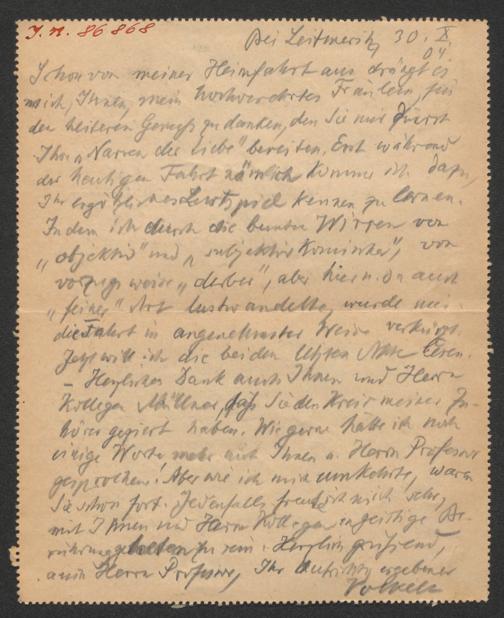 J. N. 86868
Bei Leitmeritz, 30. X.
04.
Schon von meiner Heimfahrt aus drängt es
mich, Ihnen, mein hochverehrtes Fräulein, für
den heiteren Genuß zu danken, den Sie mir durch
Ihre „Narren der Liebe" bereiten. Erst während
der heutigen Fahrt nämlich komme ich dazu,
Ihr ergötzliches Lustspiel kennen zu lernen.
Indem ich durch die bunten Wirren von
„objektiv" und „subjektiv Komischer", von
vorzugsweise „derber", aber hie u. da auch
„feiner" Art lustwandelte, wurde mir
die Fahrt in angenehmster Weise verkürzt.
Jetzt will ich die beiden letzten Akte lesen.
– Herzlichen Dank auch Ihnen und Herrn
Kollegen Müllner, daß Sie den Kreis meiner Zu-
hörer geziert haben. Wie gerne hätte ich noch
einige Worte mehr mit Ihnen u. Herrn Professor
gesprochen! Aber wie ich mich umkehrte, waren
Sie schon fort. Jedenfalls freut es mich sehr,
mit Ihnen und Herrn Kollegen in geistige Be-
rührung getreten zu sein. Herzlich grüßend,
auch Herrn Professor, Ihr aufrichtig ergebener
Volkelt